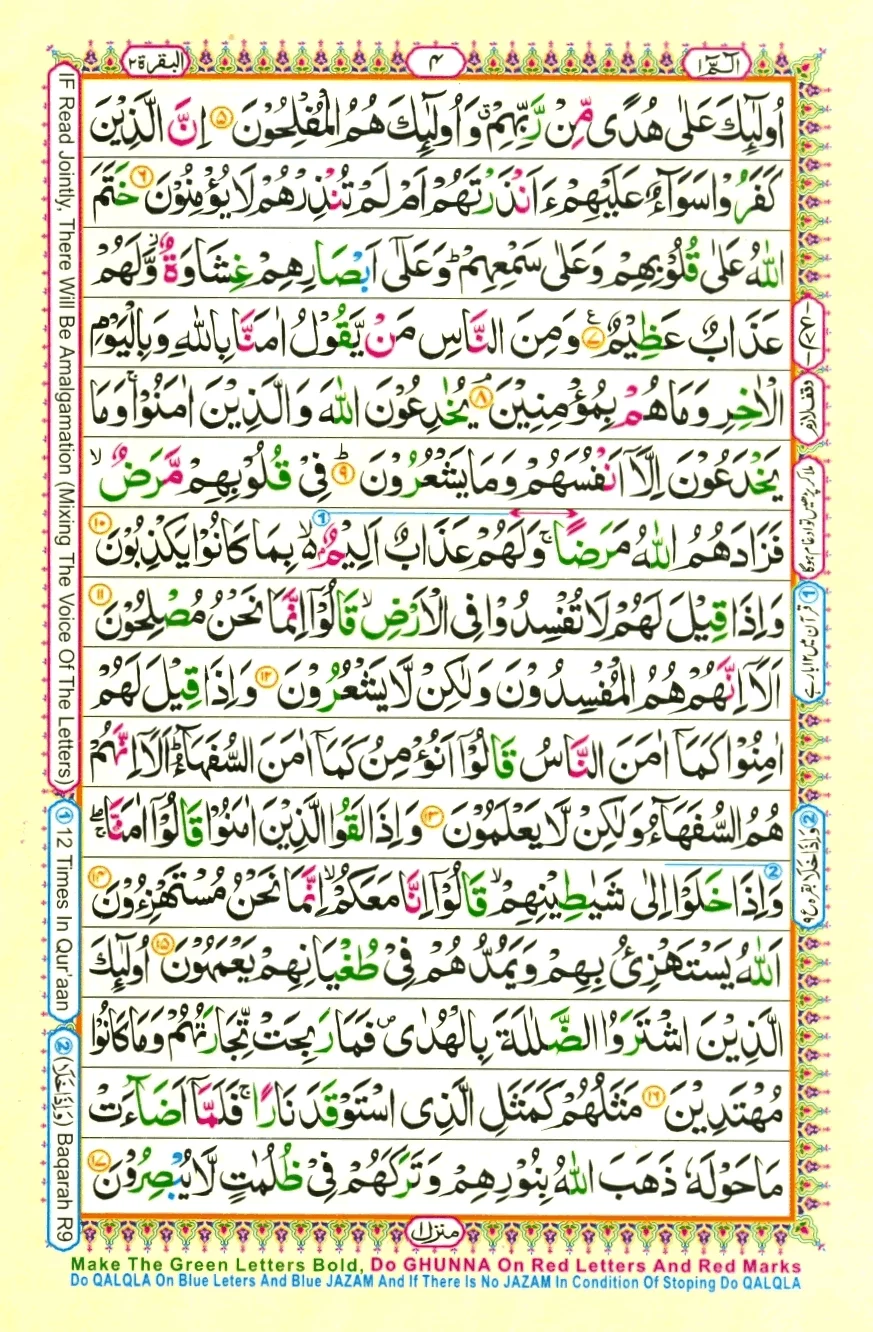 الٓمّٓ ١
٤
البقرة ٢
اُولٰٓئِكَ عَلٰى هُدًى مِّنْ رَّبِّهِمْ ۗ وَاُولٰٓئِكَ هُمُ الْمُفْلِحُوْنَ ۵ اِنَّ الَّذِيْنَ
كَفَرُوْا سَوَآءٌ عَلَيْهِمْ ءَاَنْذَرْتَهُمْ اَمْ لَمْ تُنْذِرْهُمْ لَا يُؤْمِنُوْنَ ۶ خَتَمَ
اللّٰهُ عَلٰى قُلُوْبِهِمْ وَعَلٰى سَمْعِهِمْ ؕ وَعَلٰٓى اَبْصَارِهِمْ غِشَاوَةٌ ۙ وَّلَهُمْ
عَذَابٌ عَظِيْمٌ ۷ وَمِنَ النَّاسِ مَنْ يَّقُوْلُ اٰمَنَّا بِاللّٰهِ وَبِالْيَوْمِ
الْاٰخِرِ وَمَا هُمْ بِمُؤْمِنِيْنَ ۘ ۸ يُخٰدِعُوْنَ اللّٰهَ وَالَّذِيْنَ اٰمَنُوْا ۚ وَمَا
يَخْدَعُوْنَ اِلَّآ اَنْفُسَهُمْ وَمَا يَشْعُرُوْنَ ؕ ۹ فِيْ قُلُوْبِهِمْ مَّرَضٌ ۙ
فَزَادَهُمُ اللّٰهُ مَرَضًا ۚ وَلَهُمْ عَذَابٌ اَلِيْمٌۢ ۙ۬ بِمَا كَانُوْا يَكْذِبُوْنَ ۱۰
وَاِذَا قِيْلَ لَهُمْ لَا تُفْسِدُوْا فِى الْاَرْضِ ۙ قَالُوْٓا اِنَّمَا نَحْنُ مُصْلِحُوْنَ ۱۱
اَلَآ اِنَّهُمْ هُمُ الْمُفْسِدُوْنَ وَلٰكِنْ لَّا يَشْعُرُوْنَ ۱۲ وَاِذَا قِيْلَ لَهُمْ
اٰمِنُوْا كَمَآ اٰمَنَ النَّاسُ قَالُوْٓا اَنُؤْمِنُ كَمَآ اٰمَنَ السُّفَهَآءُ ؕ اَلَآ اِنَّهُمْ
هُمُ السُّفَهَآءُ وَلٰكِنْ لَّا يَعْلَمُوْنَ ۱۳ وَاِذَا لَقُوا الَّذِيْنَ اٰمَنُوْا قَالُوْٓا اٰمَنَّا ۖۚ
وَاِذَا خَلَوْا اِلٰى شَيٰطِيْنِهِمْ ۙ قَالُوْٓا اِنَّا مَعَكُمْ ۙ اِنَّمَا نَحْنُ مُسْتَهْزِءُوْنَ ۱۴
اَللّٰهُ يَسْتَهْزِئُ بِهِمْ وَيَمُدُّهُمْ فِيْ طُغْيَانِهِمْ يَعْمَهُوْنَ ۱۵ اُولٰٓئِكَ
الَّذِيْنَ اشْتَرَوُا الضَّلٰلَةَ بِالْهُدٰى ۪ فَمَا رَبِحَتْ تِّجَارَتُهُمْ وَمَا كَانُوْا
مُهْتَدِيْنَ ۱۶ مَثَلُهُمْ كَمَثَلِ الَّذِى اسْتَوْقَدَ نَارًا ۚ فَلَمَّآ اَضَآءَتْ
مَا حَوْلَهٗ ذَهَبَ اللّٰهُ بِنُوْرِهِمْ وَتَرَكَهُمْ فِيْ ظُلُمٰتٍ لَّا يُبْصِرُوْنَ ۱۷
منزل ١
وقف لازم
ملا کر پڑھیں تو ادغام ہوگا
① قرآن میں ۱۲ بار ہے
② وَاِذَا خَلَا بقره ع ٩
IF Read Jointly, There Will Be Amalgamation (Mixing The Voice Of The Letters)
① 12 Times In Qur'aan
② (وَاِذَا خَلَا) Baqarah R9
Make The Green Letters Bold, Do GHUNNA On Red Letters And Red Marks
Do QALQLA On Blue Leters And Blue JAZAM And If There Is No JAZAM In Condition Of Stoping Do QALQLA